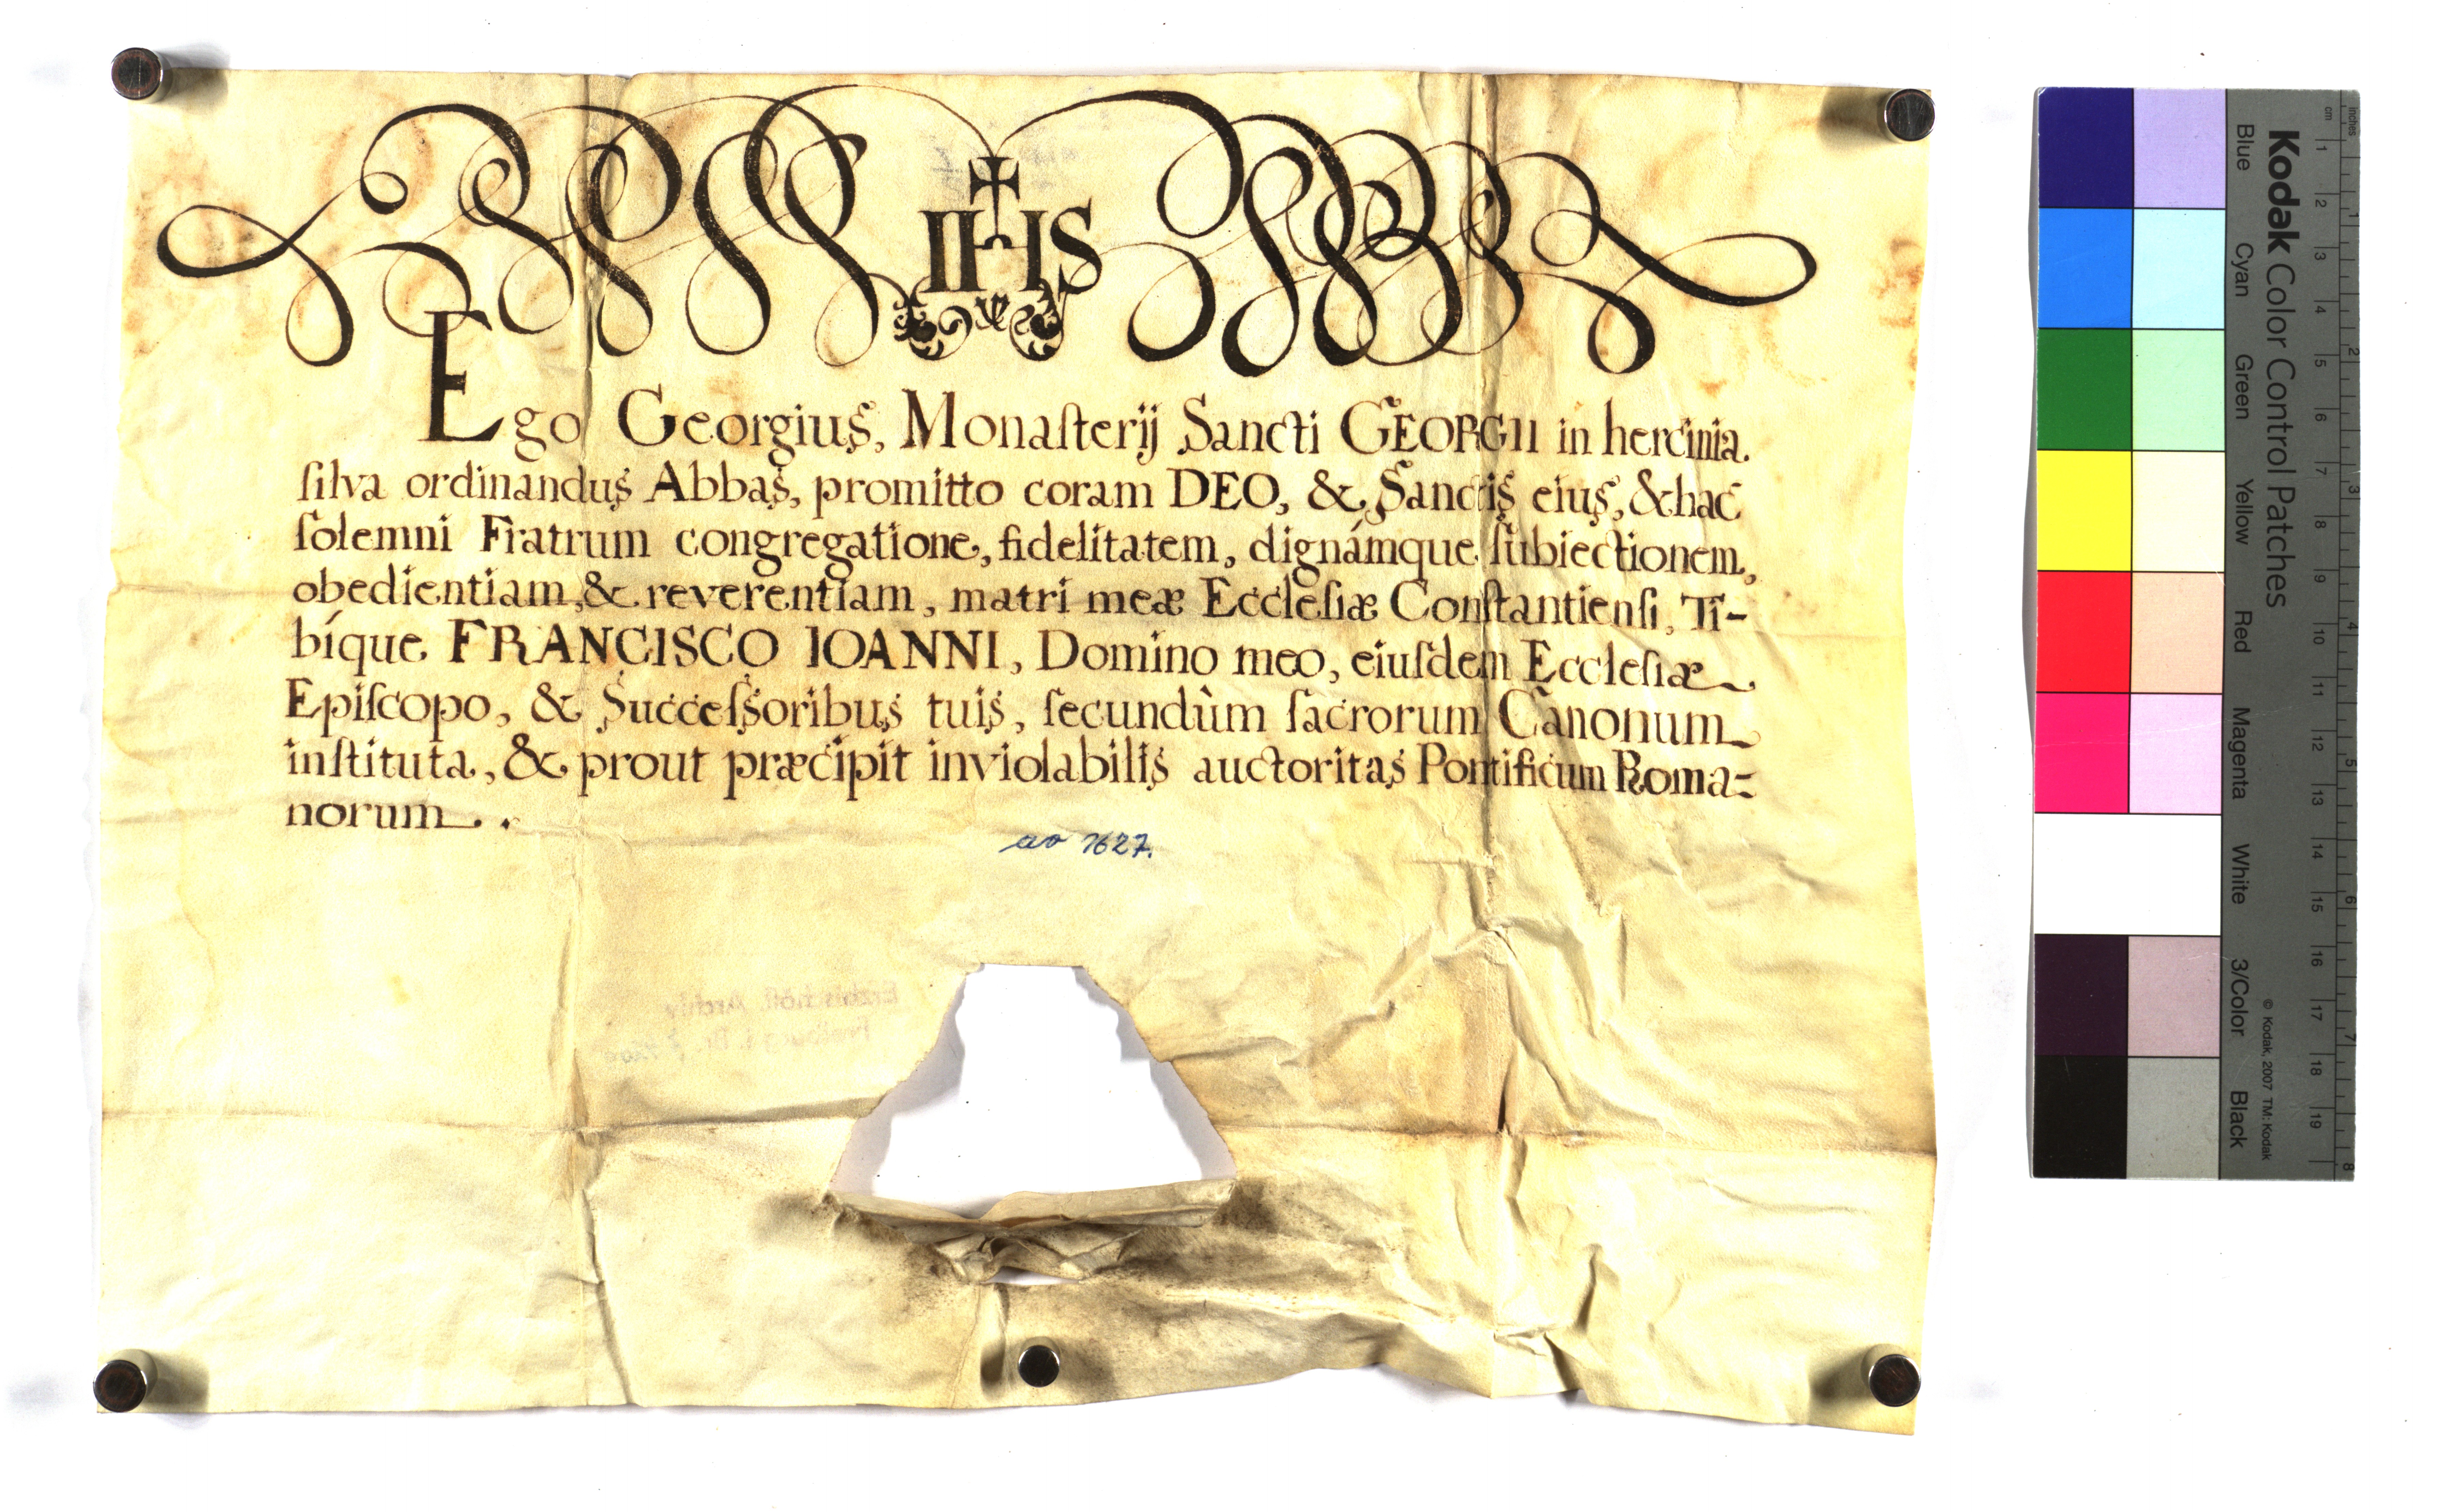 IHS
Ego Georgius, Monaſterij Sancti GEORGII in hercinia.
ſilva ordinandus Abbas, promitto coram DEO, & Sanctis eius, & hac
ſolemni Fratrum congregatione, fidelitatem, dignámque ſubiectionem,
obedientiam, & reverentiam, matri meæ Eccleſiæ Conſtantienſi, Ti-
bíque FRANCISCO IOANNI, Domino meo, eiuſdem Eccleſiæ
Epiſcopo, & Succeſsoribus tuis, ſecundùm ſacrorum Canonum
inſtituta, & prout præcipit inviolabilis auctoritas Pontificum Roma-
norum.
ao 1627.
Erzbischöfl. Archiv
Freiburg i. Br.
Kodak Color Control Patches
Blue Cyan Green Yellow Red Magenta White 3/Color Black
© Kodak, 2007 TM: Kodak
inches
1 2 3 4 5 6 7 8
cm
1 2 3 4 5 6 7 8 9 10 11 12 13 14 15 16 17 18 19